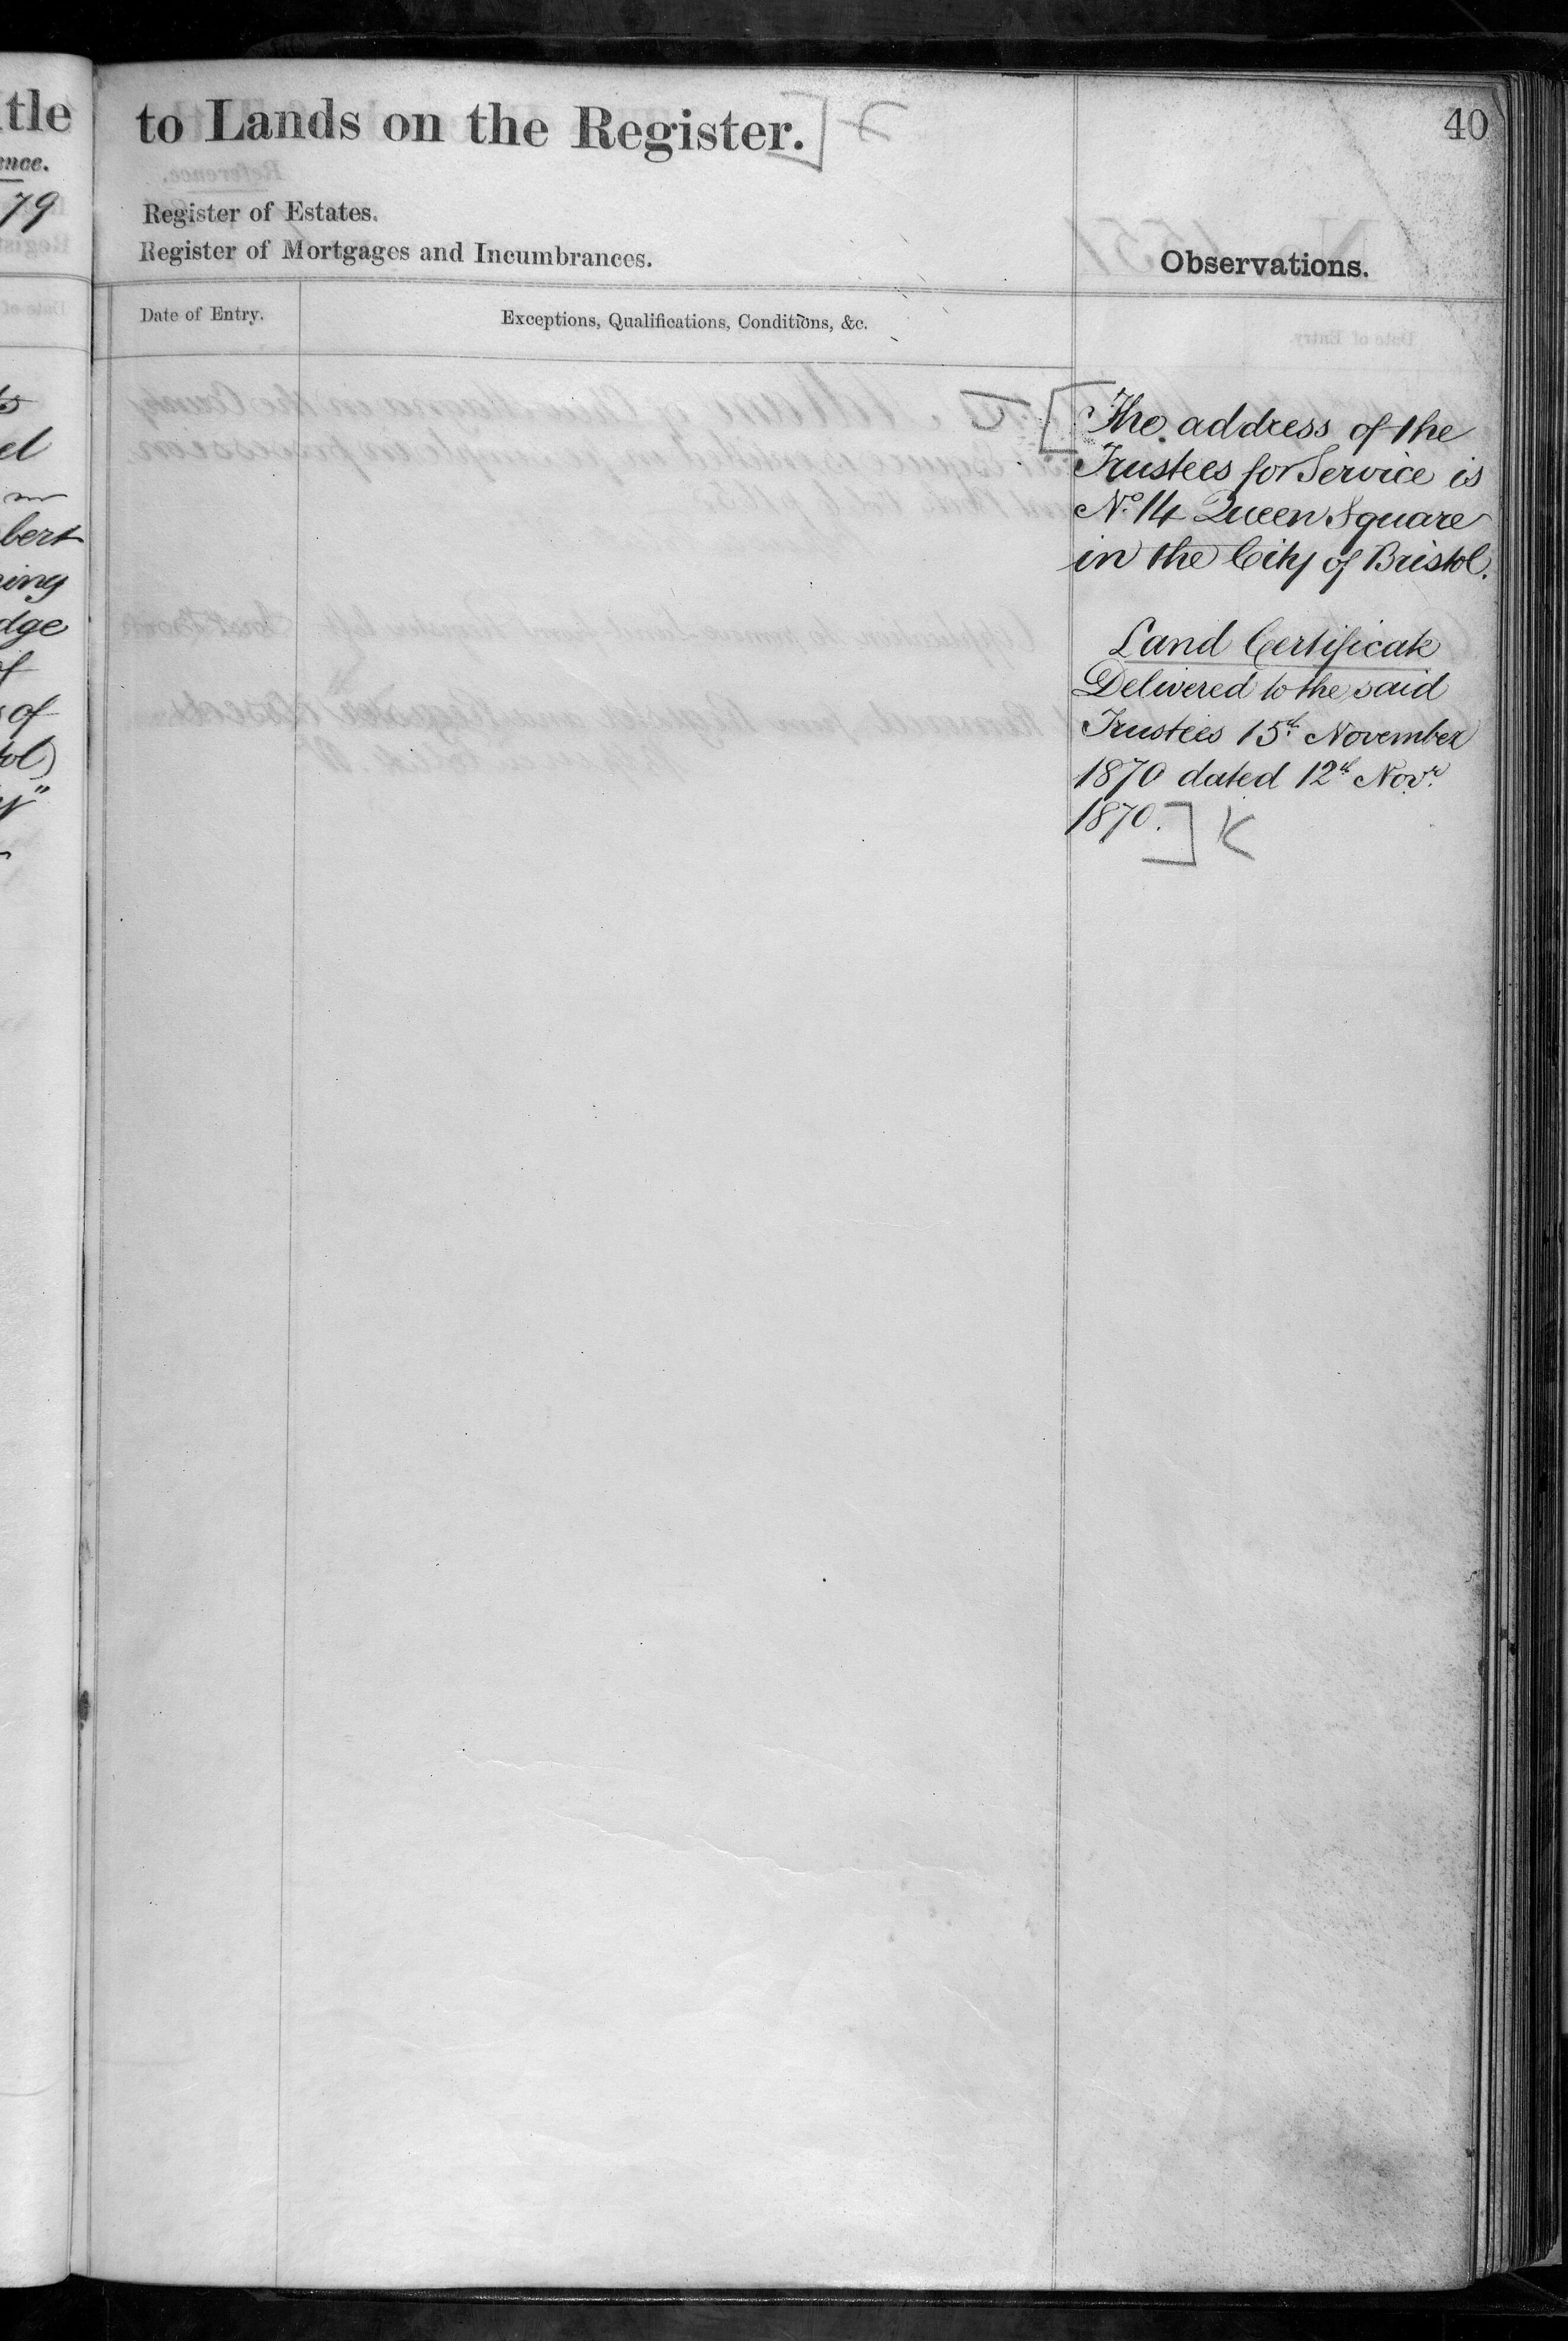 tle
ence.
79
el
bert
ing
dge
of
of
ol)
to Lands on the Register.]
40
Register of Estates.
Register of Mortgages and Incumbrances.
Observations.
Date of Entry.
Exceptions, Qualifications, Conditions, &c.
[The address of the
Trustees for Service is
No. 14 Queen Square
in the City of Bristol.
Land Certificate
Delivered to the said
Trustees 15th November
1870 dated 12th Novr.
1870.] K